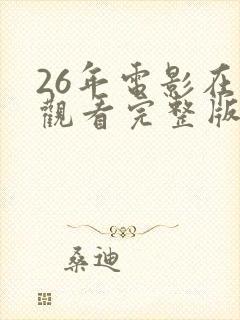 26年電影在
觀看完整版
桑迪